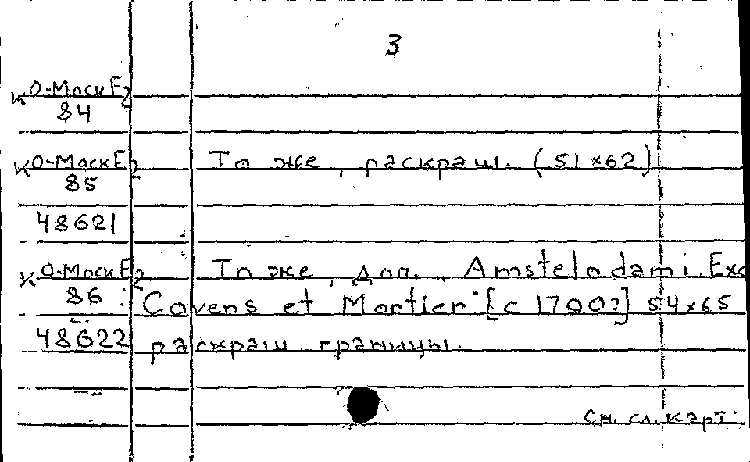 3
КО-Моск Е2
84
КО-Моск Е2 То же, раскраш. (51×62)
85
48621
КО-Моск Е2 То же, доп. Amstelodami. Exc
86 Covens et Mortier [с 1700?] 54×65
48622 раскраш границы.
См. сл. карт.